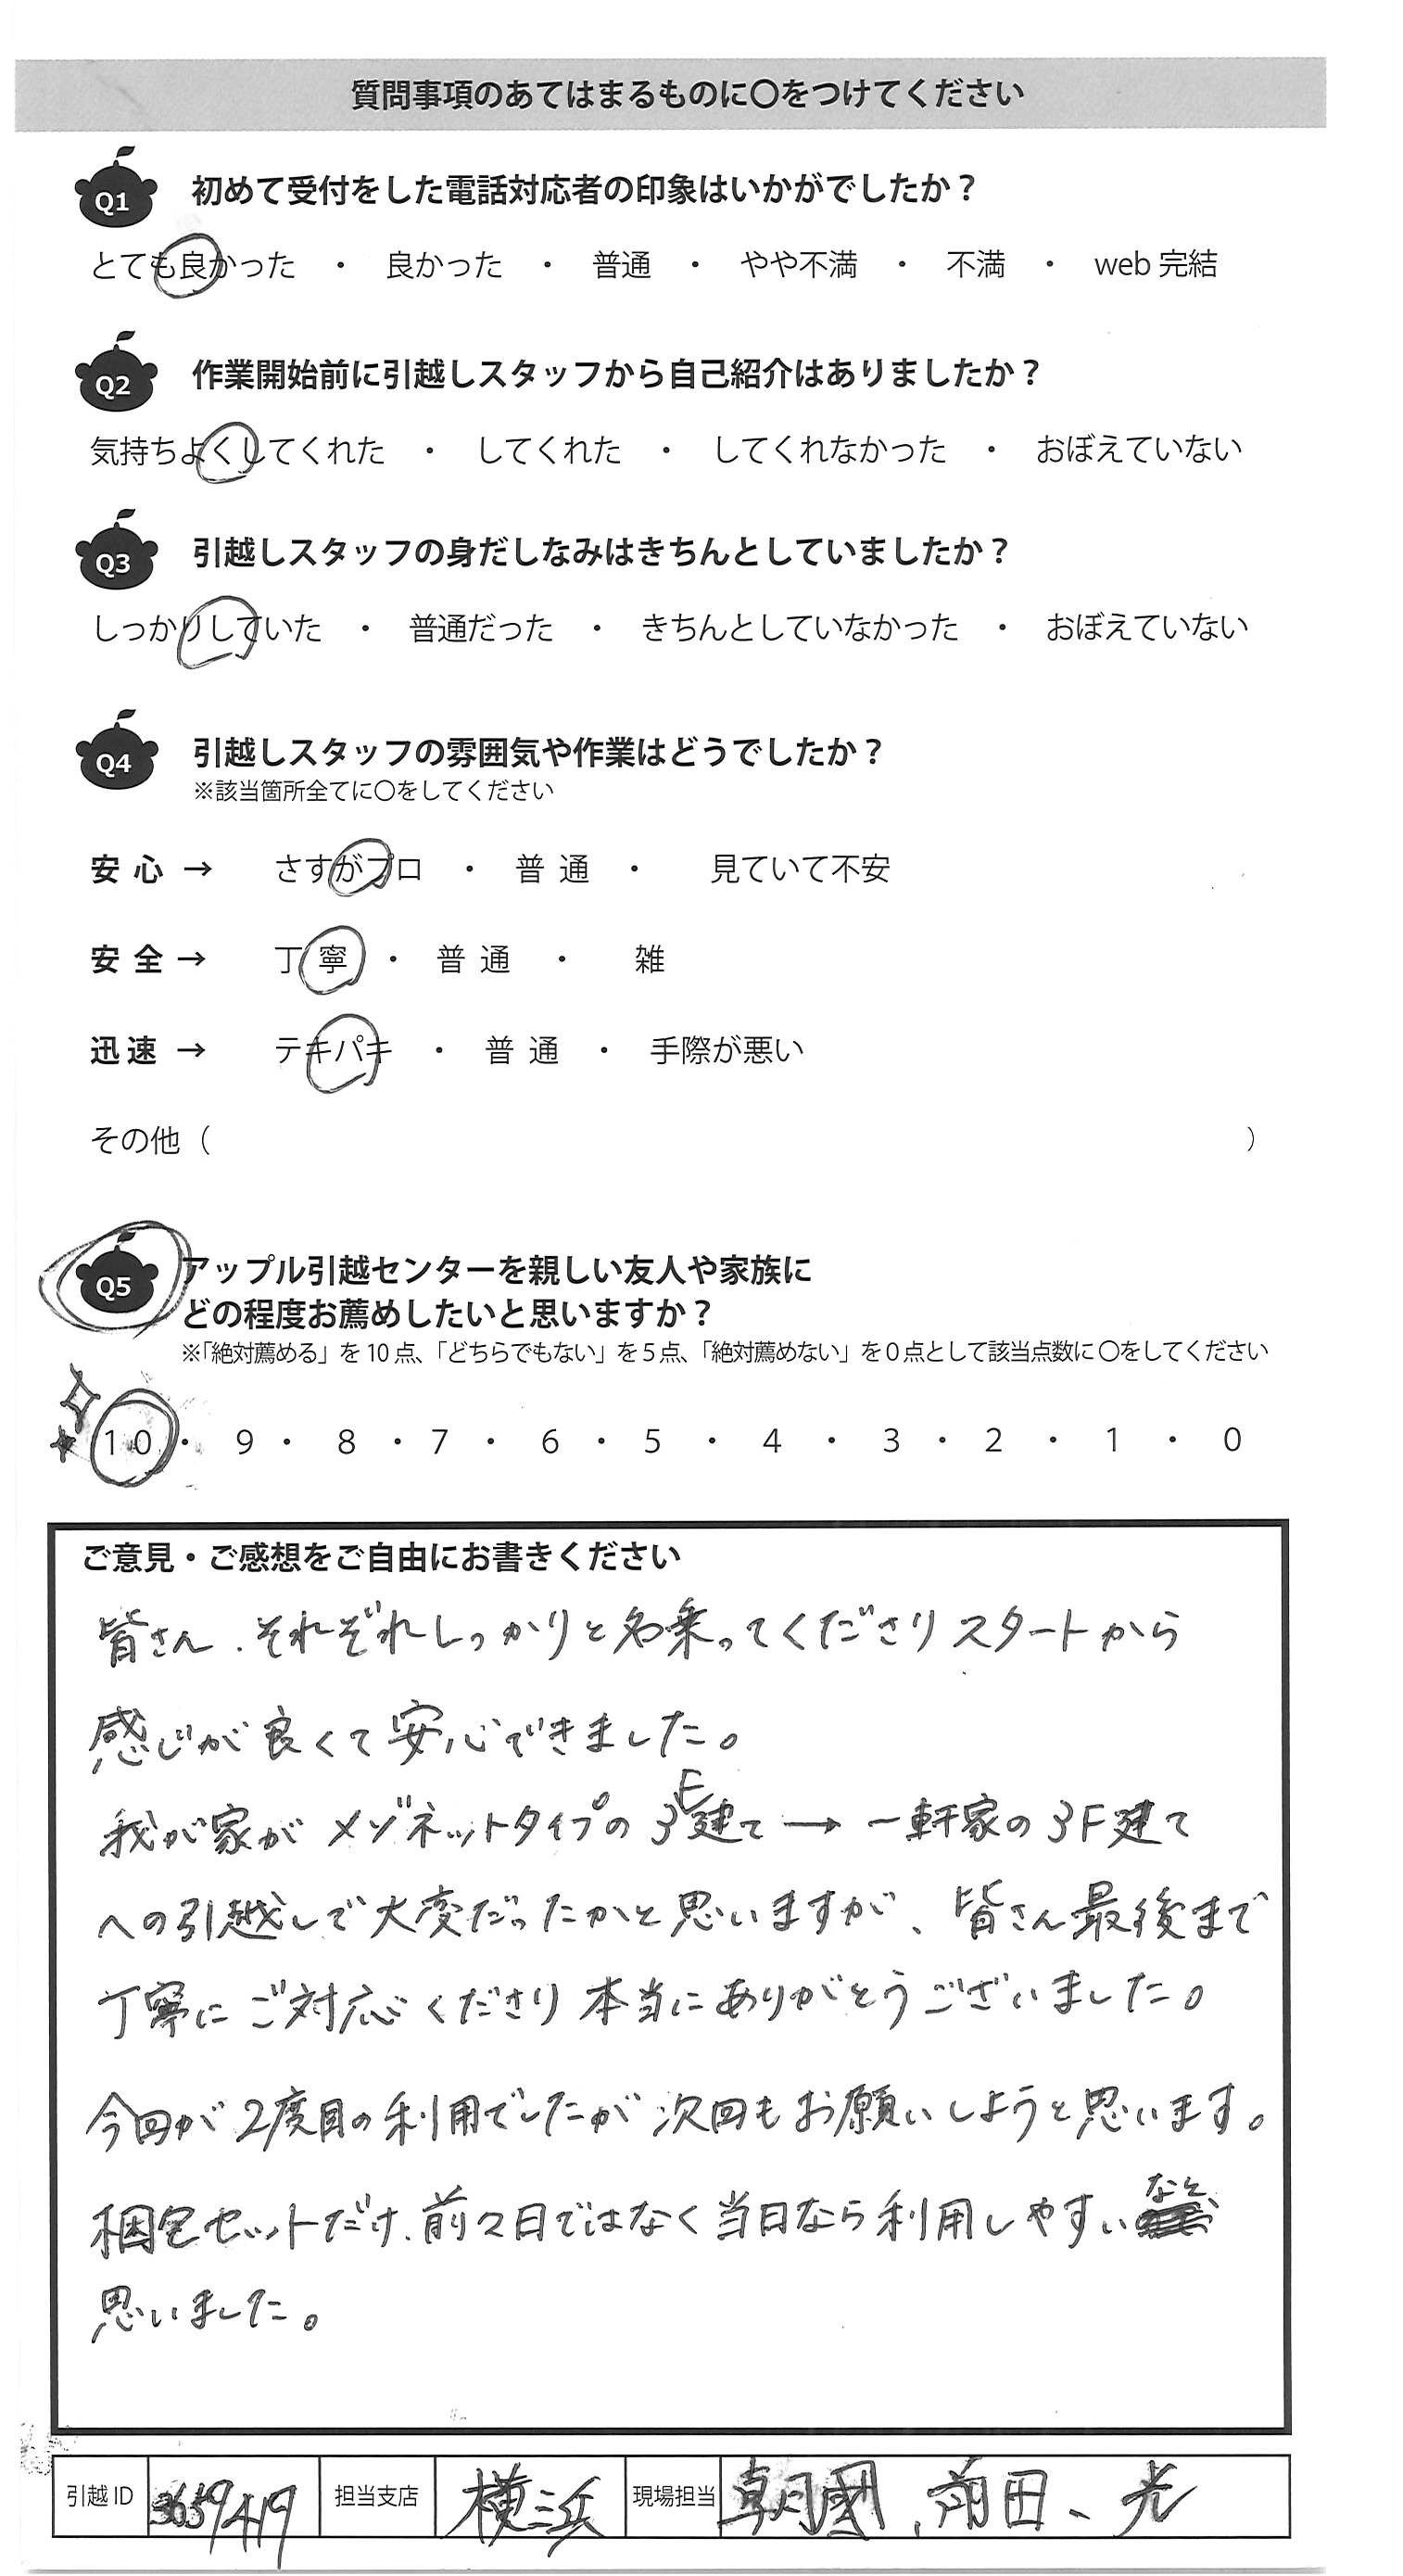 質問事項のあてはまるものに〇をつけてください
Q1 初めて受付をした電話対応者の印象はいかがでしたか？
とても良かった ・ 良かった ・ 普通 ・ やや不満 ・ 不満 ・ web 完結
Q2 作業開始前に引越しスタッフから自己紹介はありましたか？
気持ちよくしてくれた ・ してくれた ・ してくれなかった ・ おぼえていない
Q3 引越しスタッフの身だしなみはきちんとしていましたか？
しっかりしていた ・ 普通だった ・ きちんとしていなかった ・ おぼえていない
Q4 引越しスタッフの雰囲気や作業はどうでしたか？
※該当箇所全てに〇をしてください
安心 → さすがプロ ・ 普通 ・ 見ていて不安
安全 → 丁寧 ・ 普通 ・ 雑
迅速 → テキパキ ・ 普通 ・ 手際が悪い
その他（ ）
Q5 アップル引越センターを親しい友人や家族に
どの程度お薦めしたいと思いますか？
※「絶対薦める」を10点、「どちらでもない」を5点、「絶対薦めない」を0点として該当点数に〇をしてください
10 ・ 9 ・ 8 ・ 7 ・ 6 ・ 5 ・ 4 ・ 3 ・ 2 ・ 1 ・ 0
ご意見・ご感想をご自由にお書きください
皆さん、それぞれしっかりと名乗ってくださりスタートから
感じが良くて安心できました。
我が家がメゾネットタイプの3F建て→一軒家の3F建て
への引越しで大変だったかと思いますが、皆さん最後まで
丁寧にご対応くださり本当にありがとうございました。
今回が2度目の利用でしたが次回もお願いしようと思います。
梱包セットだけ、前々日ではなく当日なら利用しやすいなと、
思いました。
引越ID 担当支店 横浜 現場担当 朝國、前田、光